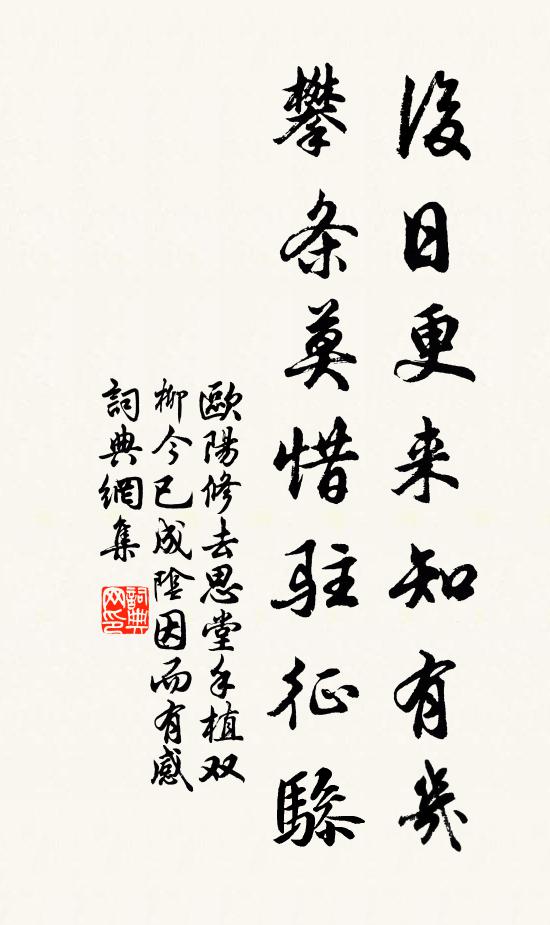 後日更来知有幾
攀条莫惜駐征騑
歐陽修去思堂手植双
柳今已成陰因而有感
詞典網集
詞典网印